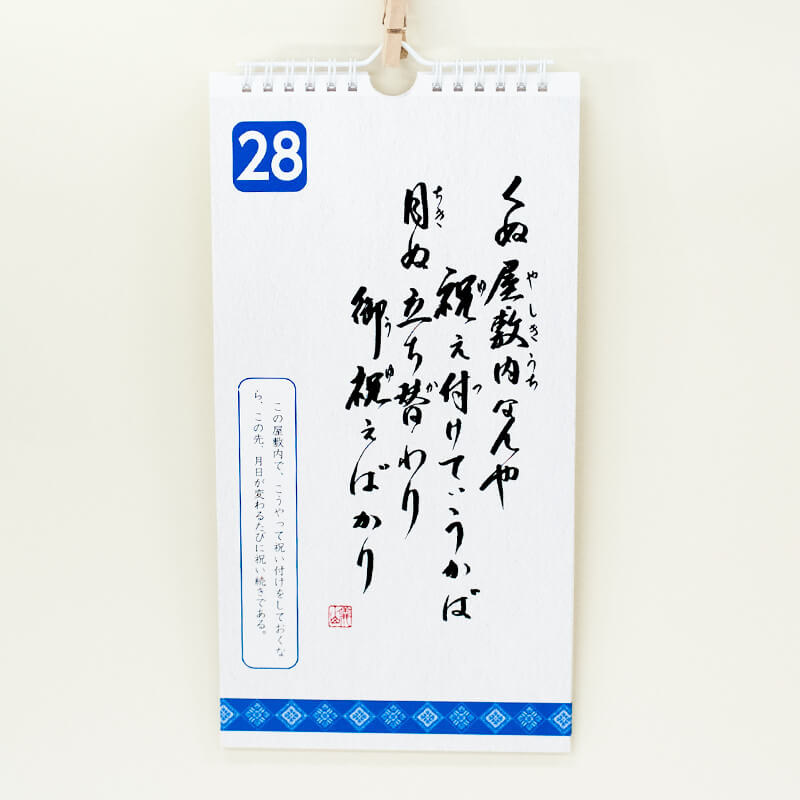 28
くぬ屋敷内なんや
やしきうち
祝え付けてぃうかば
ゆ
つ
月ぬ立ち替わり
ちき
か
御祝えばかり
う
ゆ
この屋敷内で、こうやって祝い付けをしておくな
ら、この先、月日が変わるたびに祝い続きである。